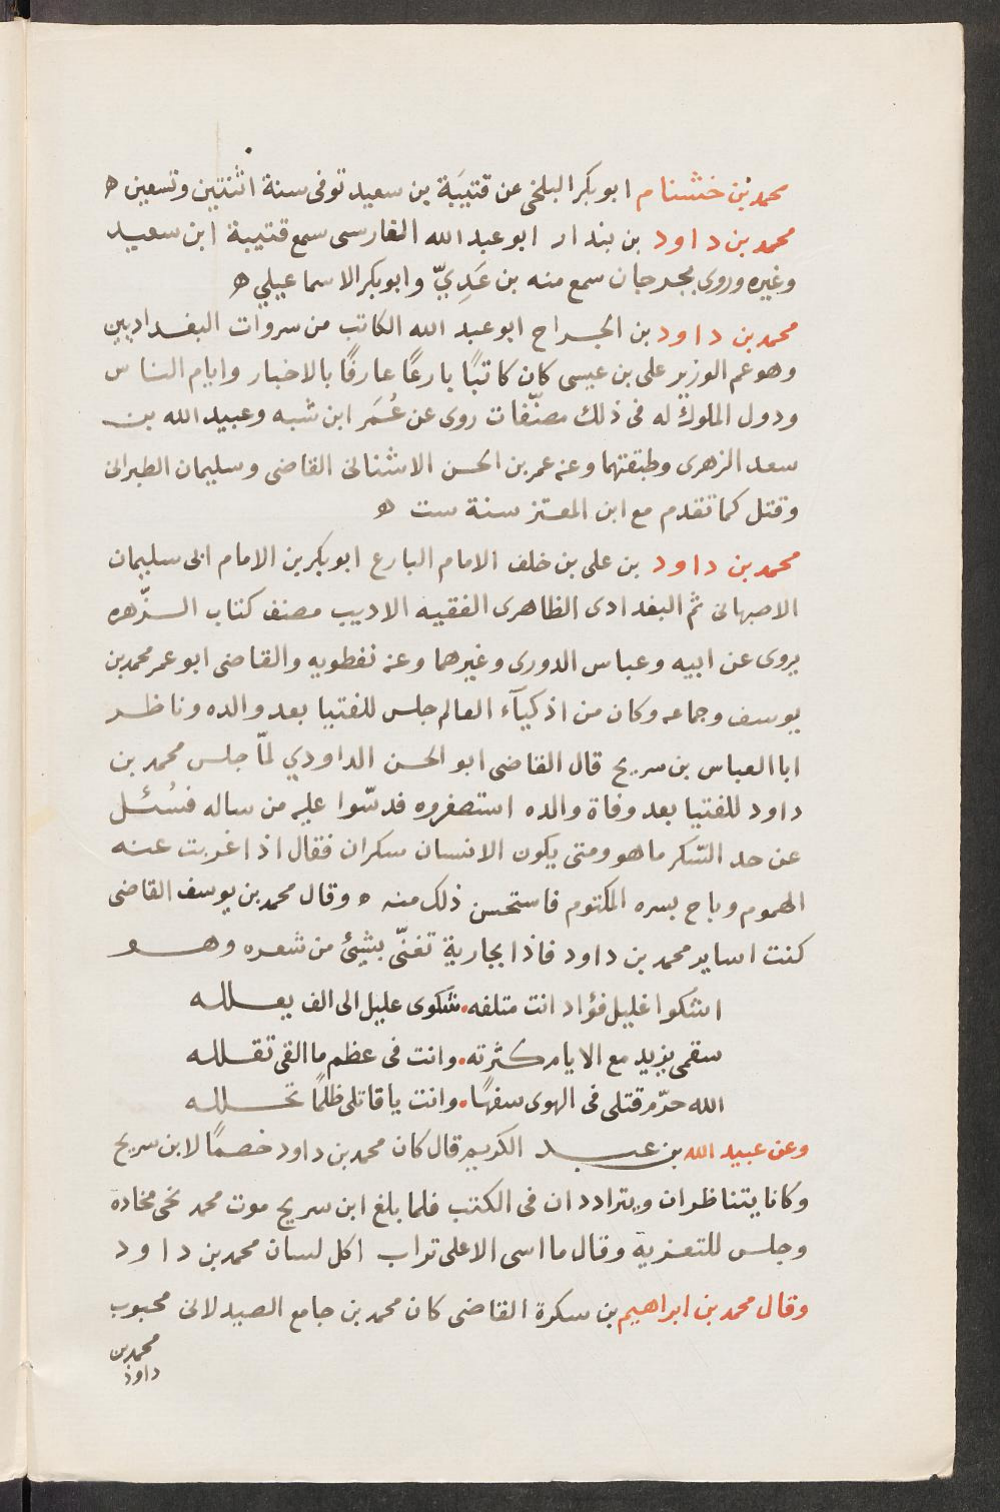 محمد بن خشنام ابو بكر البلخي عن قتيبَة بن سعيد توفى سنة اثنتين وتسعين ه
محمد بن داود بن بندار ابو عبد الله الفارسى سمع قتيبة ابن سعيد
وغيره وروى بجرجان سمع منه بن عَدِيّ وابو بكر الاسماعيلي ه
محمد بن داود بن الجراح ابو عبد الله الكاتب من سروات البغداديين
وهو عم الوزير على بن عيسى كان كاتبًا بارعًا عارفًا بالاخبار وايام الناس
ودول الملوك له فى ذلك مصنّفات روى عن عُمَر ابن شبه وعبيد الله بن
سعد الزهرى وطبقتهما وعنه عمر بن الحسن الاشنانى القاضى وسليمان الطبرانى
وقتل كما تقدم مع ابن المعتز سنة ست ه
محمد بن داود بن على بن خلف الامام البارع ابو بكر بن الامام ابى سليمان
الاصبهانى ثم البغدادى الظاهرى الفقيه الاديب مصنف كتاب الزّهره
يروى عن ابيه وعباس الدورى وغيرهما وعنه نفطويه والقاضى ابو عمر محمد بن
يوسف وجماعه وكان من اذكيآء العالم جلس للفتيا بعد والده وناظر
ابا العباس بن سريح قال القاضى ابو الحسن الداودي لمّا جلس محمد بن
داود للفتيا بعد وفاة والده استصغروه فدسّوا عليه من ساله فسُئل
عن حد السّكر ما هو ومتى يكون الانسان سكران فقال اذا غربت عنه
الهموم وباح بسره المكتوم فاستحسن ذلك منه ه وقال محمد بن يوسف القاضى
كنت اساير محمد بن داود فاذا بجارية تغنّى بشيئ من شعره وهو
اشكوا غليل فؤاد انت متلفه . شكوى عليل الى الف يعلله
سقمى يزيد مع الايام كثرته . وانت فى عظم ما القى تقلله
الله حرّم قتلى فى الهوى سفهًا . وانت يا قاتلى ظلمًا تحلله
وعن عبيد الله بن عبد الكريم قال كان محمد بن داود خصمًا لابن سريح
وكانا يتناظران ويترادد ان فى الكتب فلما بلغ ابن سريح موت محمد نحى مخاده
وجلس للتعزية وقال ما اسى الا على تراب اكل لسان محمد بن داود
وقال محمد بن ابراهيم بن سكرة القاضى كان محمد بن جامع الصيدلانى محبوب
محمد بن
داود